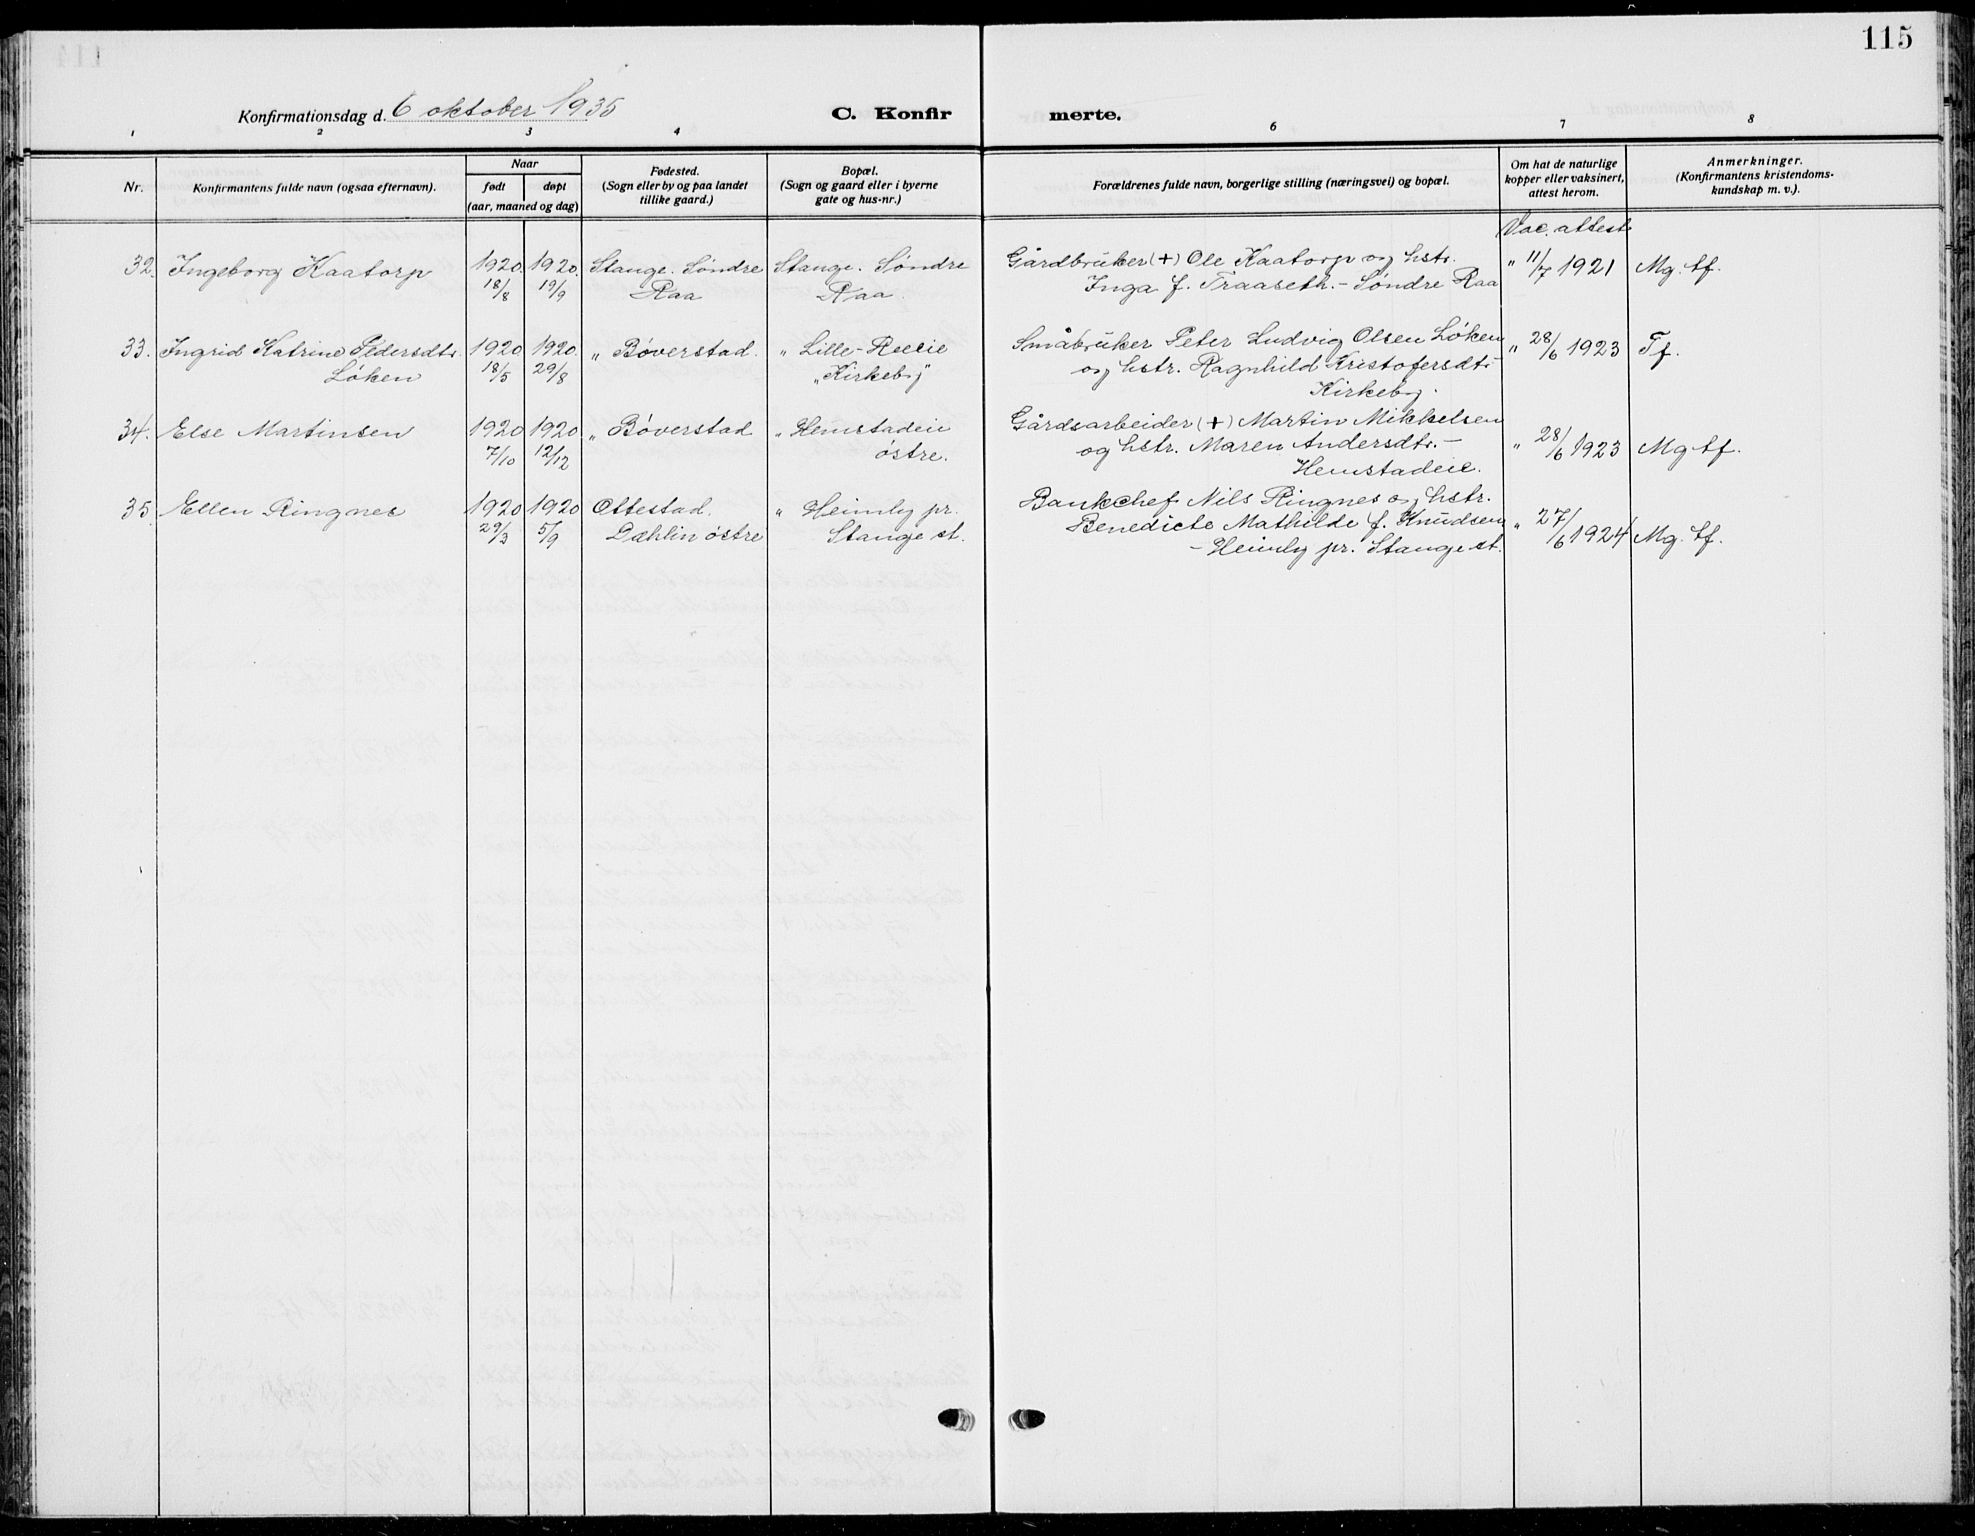 115
Konfirmationsdag d. 6 oktober 1935 C. Konfirmerte.
1 2 3 4 6 7 8
Nr.
Konfirmantens fulde navn (ogsaa efternavn).
Naar
født døpt
(aar, maaned og dag)
Fødested.
(Sogn eller by og paa landet
tillike gaard.)
Bopæl.
(Sogn og gaard eller i byerne
gate og hus-nr.)
Forældrenes fulde navn, borgerlige stilling (næringsvei) og bopæl.
Om hat de naturlige
kopper eller vaksinert,
attest herom.
Anmerkninger.
(Konfirmantens kristendoms-
kundskap m. v.).
Vac. attest
32. Ingeborg Kaatorp 1920 1920 Stange. Søndre Stange. Søndre Gårdbruker (+) Ole Kaatorp og hstr. " 11/7 1921 Mg. tf.
18/8 19/9 Raa Raa. Inga f. Traaseth. - Søndre Raa
33. Ingrid Katrine Pedersdtr. 1920 1920 " Bøverstad. " Lille-Reeeie Småbruker Peter Ludvig Olsen Løken " 28/6 1923 Tf.
Løken 18/5 29/8 "Kirkeby" og hstr. Ragnhild Kristofersdtr -
Kirkeby.
34. Else Martinsen 1920 1920 " Bøverstad " Hemstadeie Gårdsarbeider (+) Martin Mikkelsen " 28/6 1923 Mg tf.
7/10 12/12 østre. og hstr. Maren Andersdtr. -
Hemstadeie.
35. Ellen Ringnes 1920 1920 Ottestad. " Heimly pr. Bankchef Nils Ringnes og hstr. " 27/6 1924 Mg. tf.
29/3 5/9 Dæhlin østre Stange st. Benedicte Mathilde f. Knudsen
- Heimly pr. Stange st.